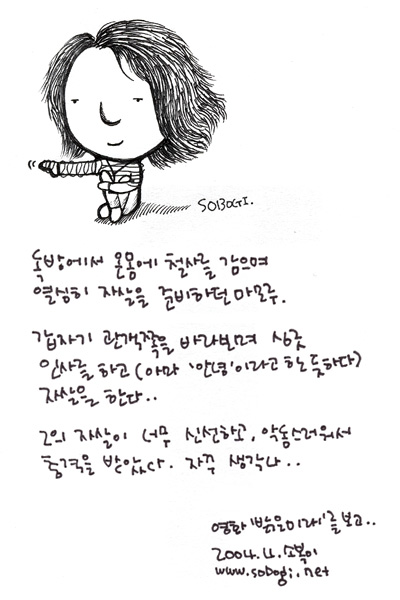 SOBOGI.
독방에서 온몸에 철사를 감으며
열심히 자살을 준비하던 마모루.
갑자기 관객쪽을 바라보며 싱긋
인사를 하고(아마 '안녕'이라고 하는 듯하다)
자살을 한다..
그의 자살이 너무 신선하고, 악동스러워서
충격을 받았다. 자꾸 생각나..
영화 '밝은미래'를 보고..
2004.4.소복이
www.sobogi.net